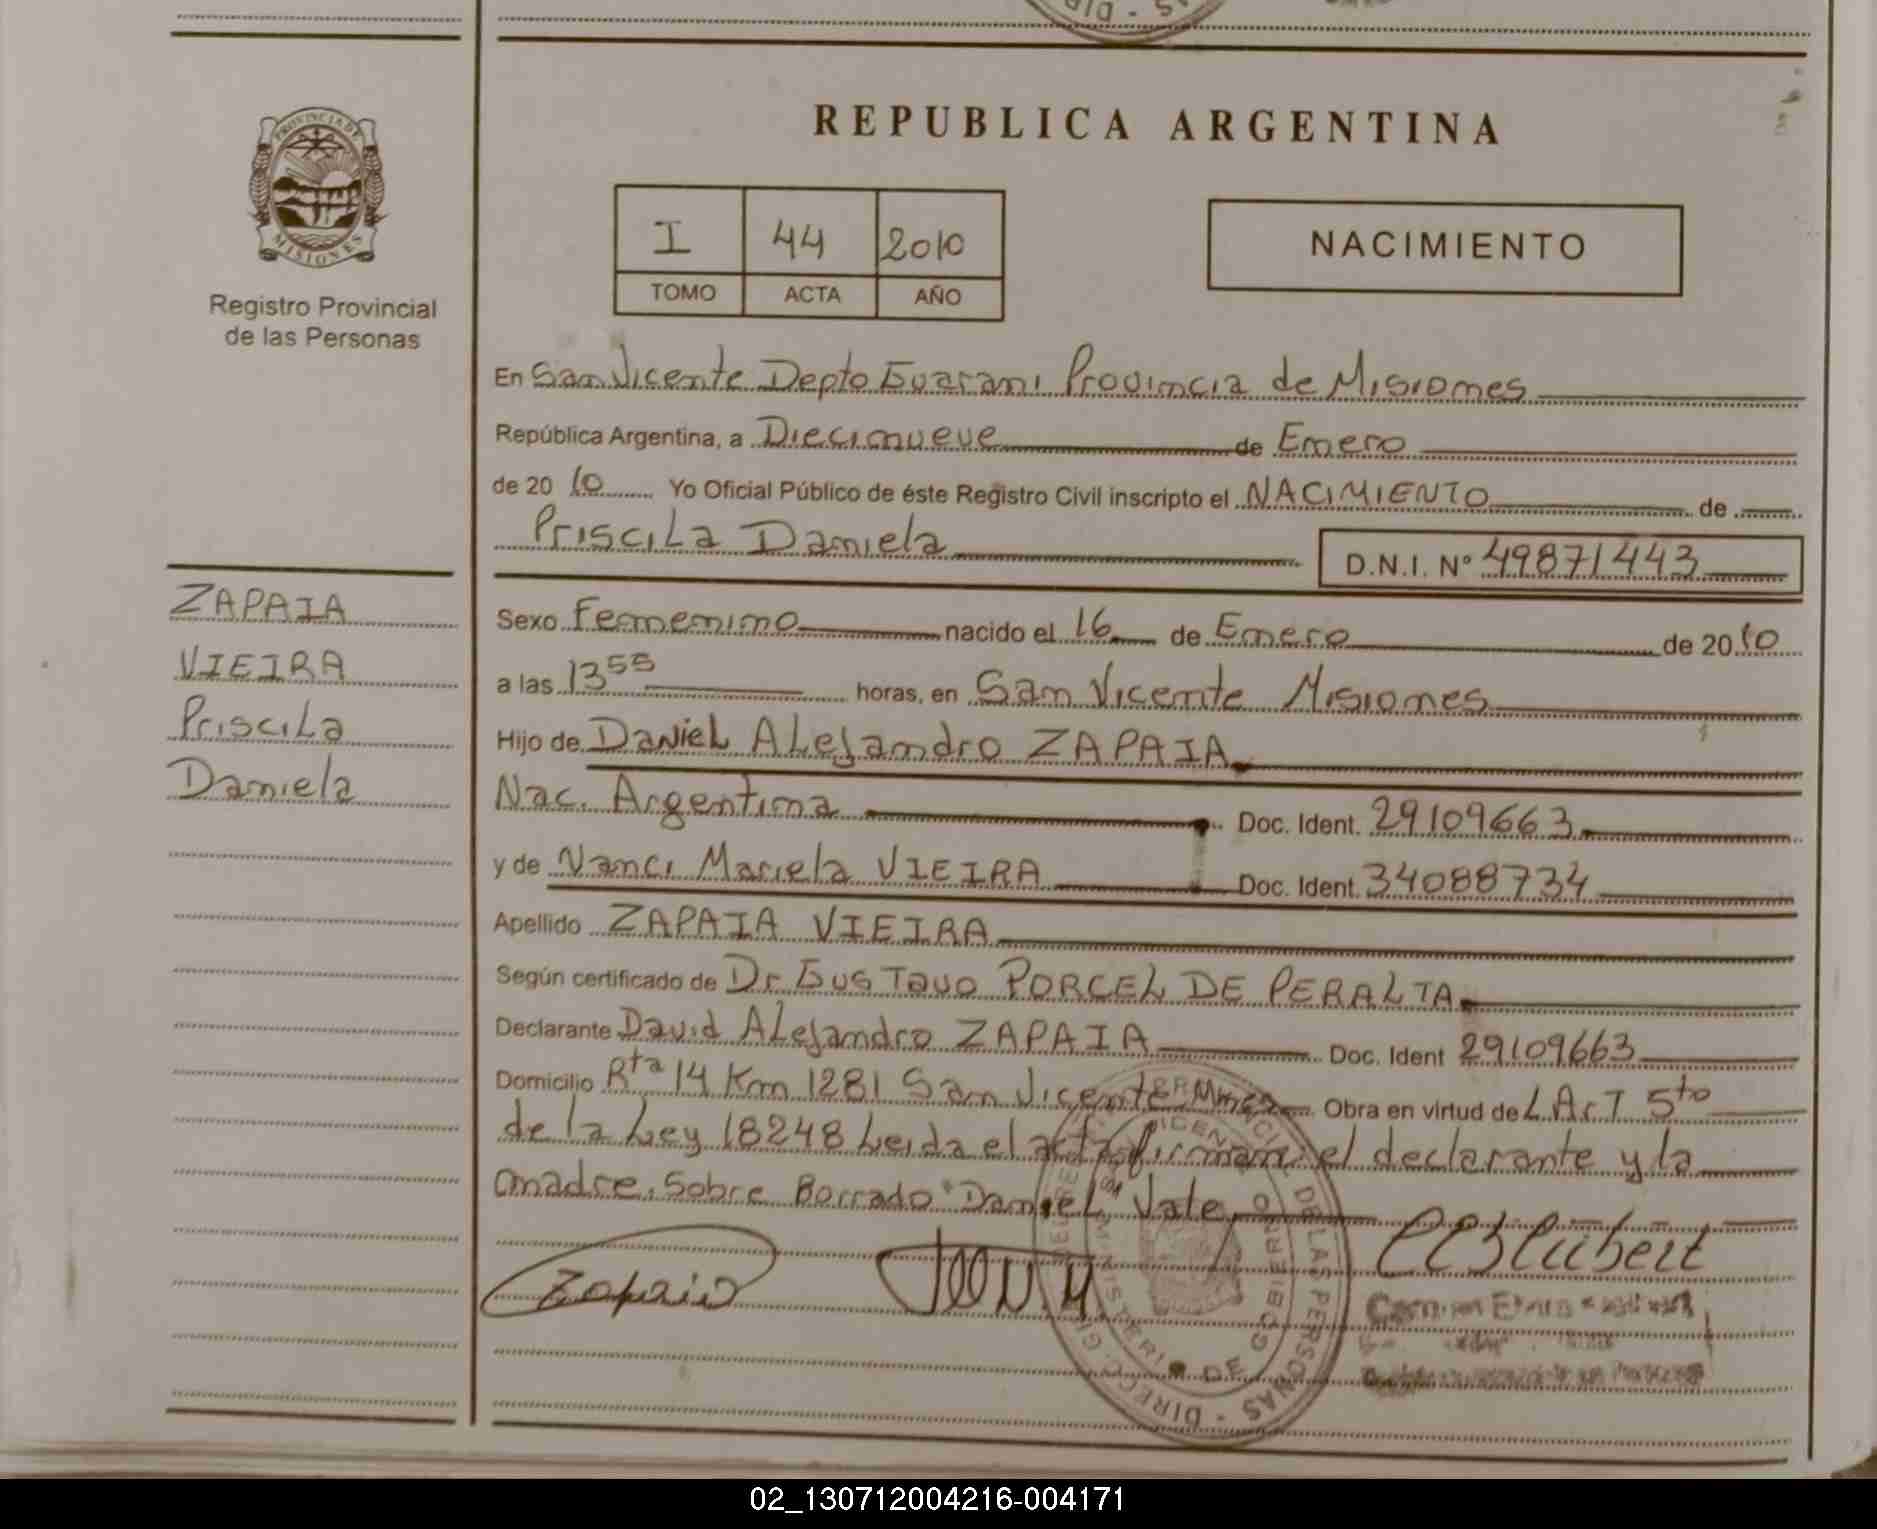 REPUBLICA ARGENTINA
PROVINCIA DE
MISIONES
Registro Provincial
de las Personas
I 44 2010
TOMO ACTA AÑO
NACIMIENTO
En San Vicente Depto Guarani Provincia de Misiones
República Argentina, a Diecinueve de Enero
de 20 10 Yo Oficial Público de éste Registro Civil inscripto el NACIMIENTO de
Priscila Daniela D.N.I. Nº 49871443
ZAPAIA
VIEIRA
Priscila
Daniela
Sexo Femenino nacido el 16 de Enero de 20 10
a las 13 55 horas, en San Vicente Misiones
Hijo de Daniel Alejandro ZAPAIA
Nac. Argentina Doc. Ident. 29109663
y de Nanci Mariela VIEIRA Doc. Ident. 34088734
Apellido ZAPAIA VIEIRA
Según certificado de Dr Gustavo PORCEL DE PERALTA
Declarante David Alejandro ZAPAIA Doc. Ident 29109663
Domicilio Rta 14 Km 1281 San Vicente Mnes Obra en virtud de L Art 5to
de la Ley 18248 Leida el acta firman el declarante y la
madre. Sobre Borrado "Daniel" Vale
Zapaia
DE LAS PERSONAS
MINISTERIO DE GOBIERNO
02_130712004216-004171